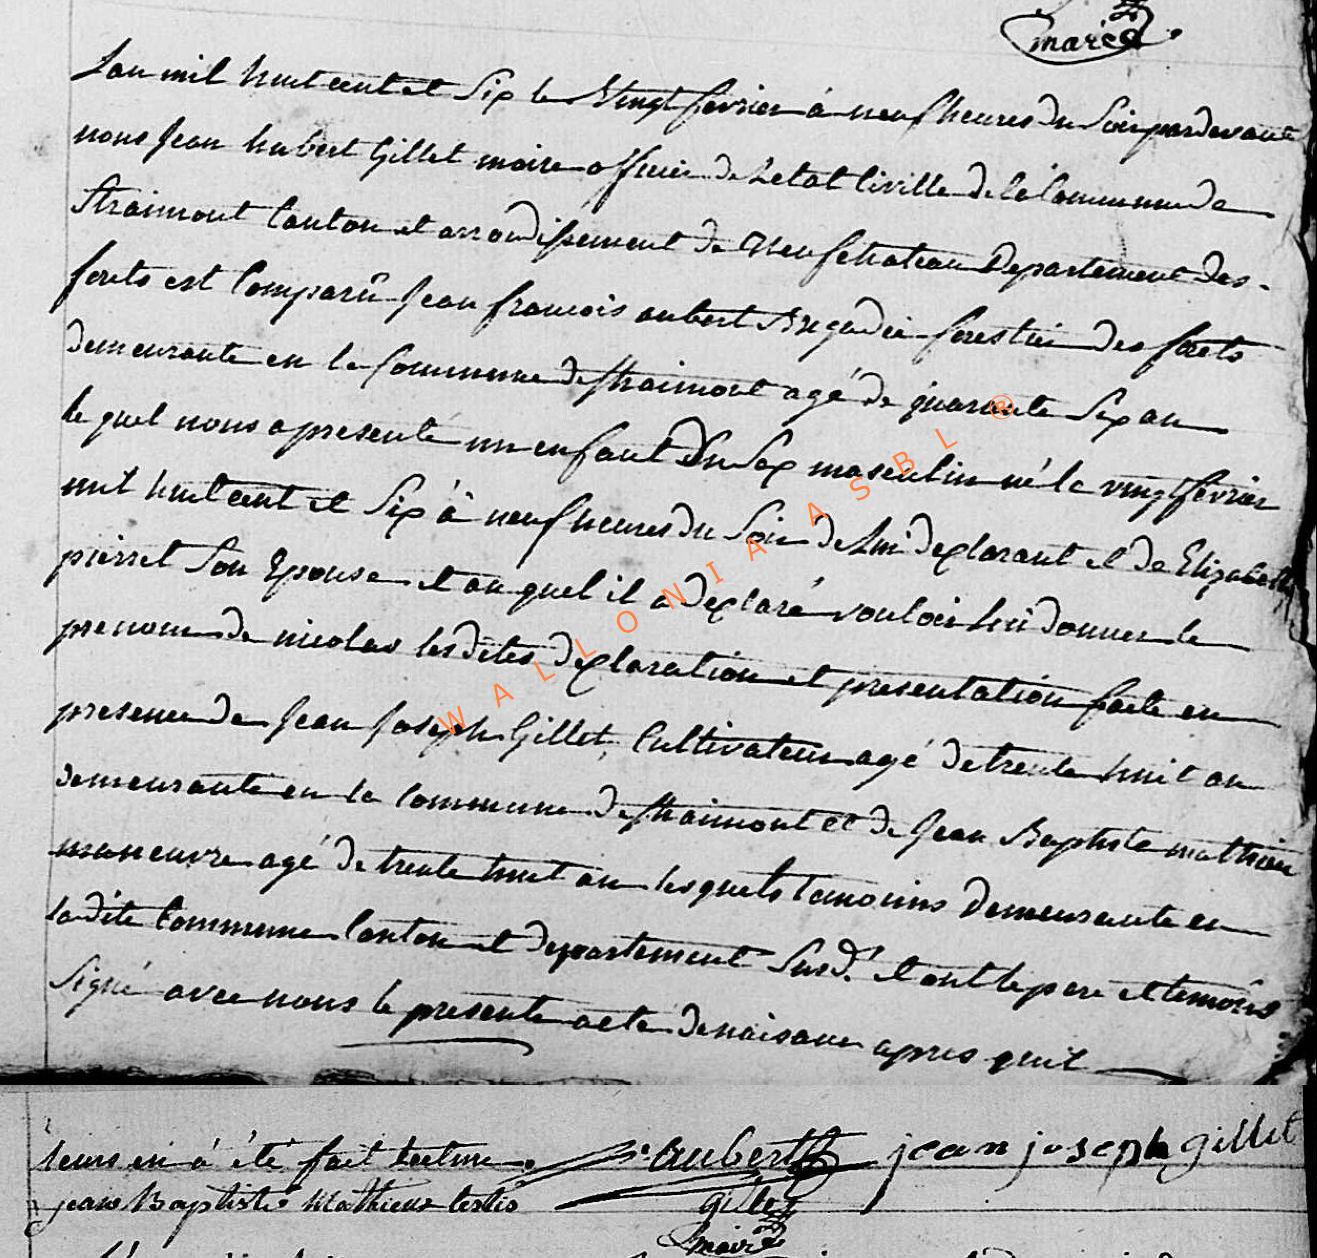 maire
Lan mil huit cent et Six le Vingt fevrier à neuf heures du Soir pardevant
nous Jean hubert Gillet maire officier de Letat Civille de la Commune de
Straimont Canton et arrondissement de Neufchateau Departement des
forets est Comparû Jean francois aubert Brigadie forestier des forets
demeurante en la Commune de Straimont agé de quarante Six an
le quel nous a presenté un enfant du Sex masculin né le vingt fevrier
mil huit cent et Six à neuf heures du Soir de Lui declarant et de Elizabeth
pierret Son Epouse et au quel il a declaré vouloir lui donner le
prenom de nicolas les dites declaration et presentation faite en
presence de Jean Joseph Gillet, Cultivateur agé de trente huit an
demeurante en la commune de Straimont et de Jean Baptiste mathieu
maneuvre agé de trente huit an lesquels temoins demeurante en
la dite Commune Canton et departement Susd. et ont le pere et temoins
Signé avec nous le presente acte de naisance apres quil
leurs en à été fait lecture. aubert jean joseph gillet
jean Baptiste Mathieux testis gillet
maire
WALLONIA ASBL ®